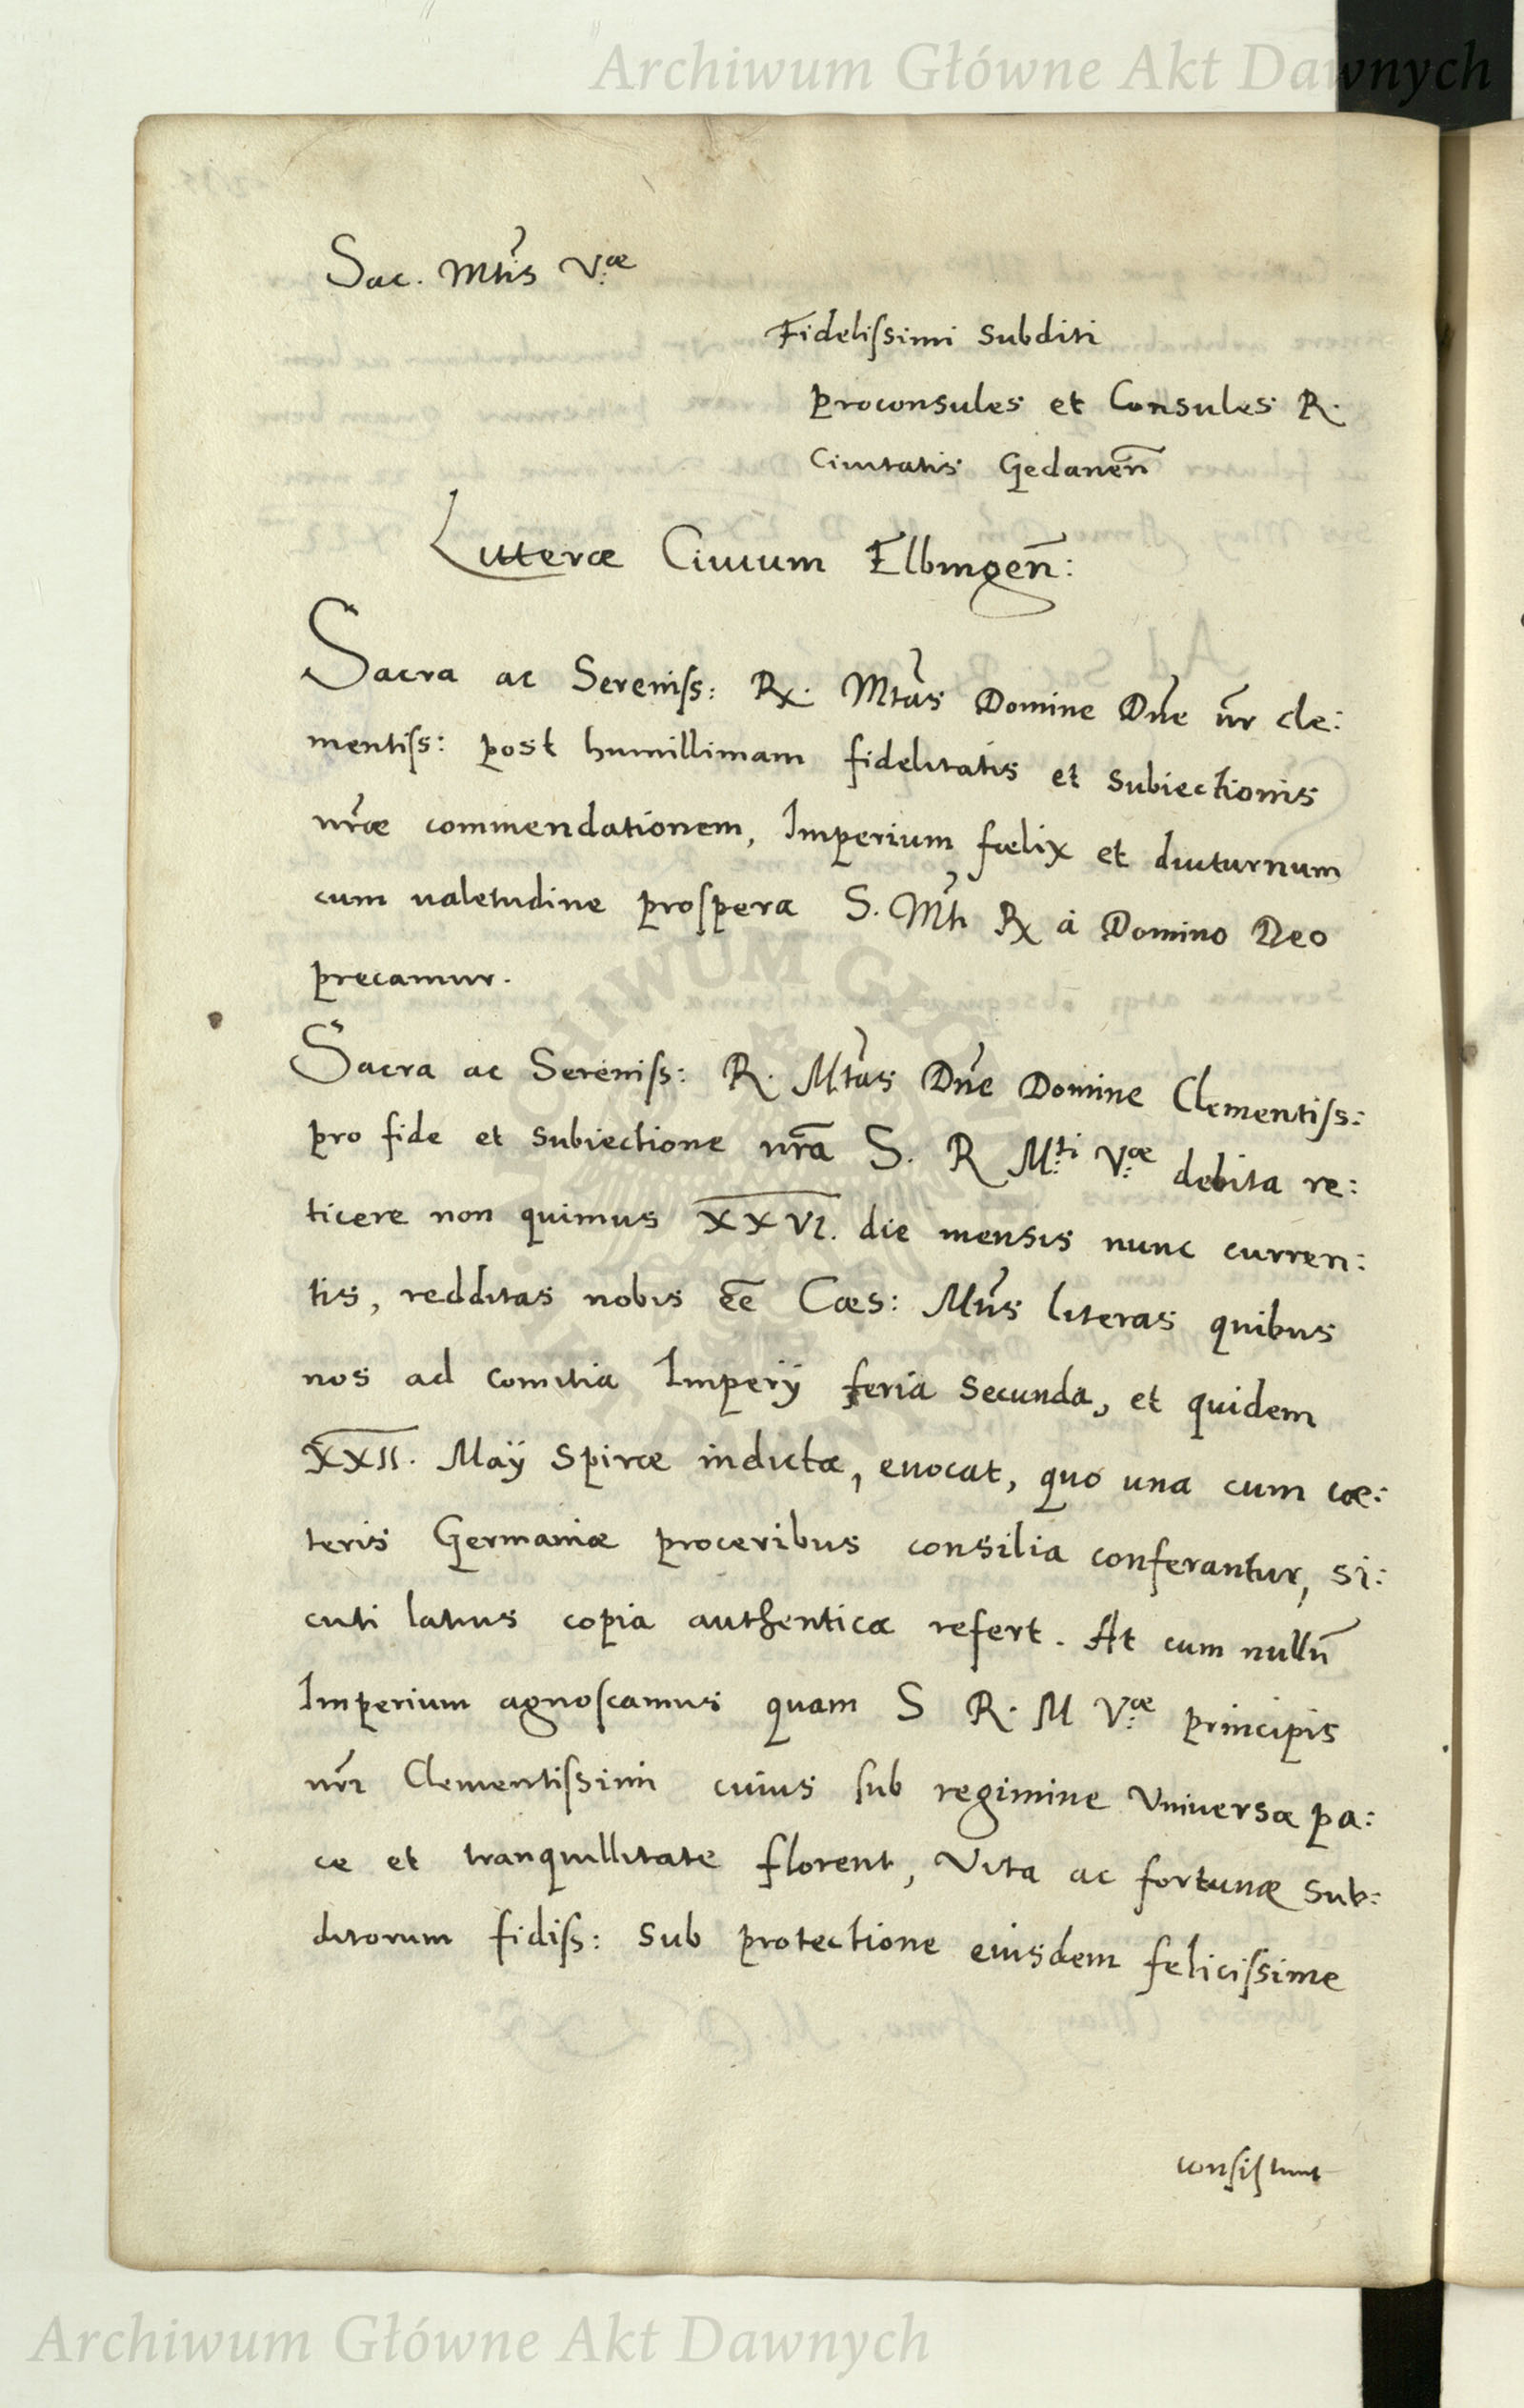 Archiwum Główne Akt Dawnych
Sac. Mtis V.æ
Fidelissimi Subditi
proconsules et Consules R.
Ciuitatis Gedanen̄
Litteræ Ciuium Elbingen̄:
Sacra ac Sereniss: Rx. Mtas Domine Dn̄e nr̄ cle:
mentiss: post humillimam fidelitatis et subiectionis
nr̄æ commendationem, Imperium fœlix et diuturnum
cum ualetudine prospera S. Mti Rx à Domino Deo
precamur.
Sacra ac Sereniss: R. Mtas Dn̄e Domine Clementiss:
pro fide et subiectione nr̄a S. R M.ti V.æ debita re:
ticere non quimus XXVI. die mensis nunc curren:
tis, redditas nobis ēē Cæs: Mtis literas quibus
nos ad comitia Imperÿ feria secunda, et quidem
XXII. Maÿ Spiræ indicta, euocat, quo una cum cæ:
teris Germaniæ proceribus consilia conferantur, si:
cuti latius copia authentica refert. At cum nullū
Imperium agnoscamus quam S R. M V.æ principis
nr̄i Clementissimi cuius sub regimine Vniuersa pa:
ce et tranquillitate florent, Vita ac fortunæ sub:
ditorum fidiss: sub protectione eiusdem felicissime
consistunt
Archiwum Główne Akt Dawnych